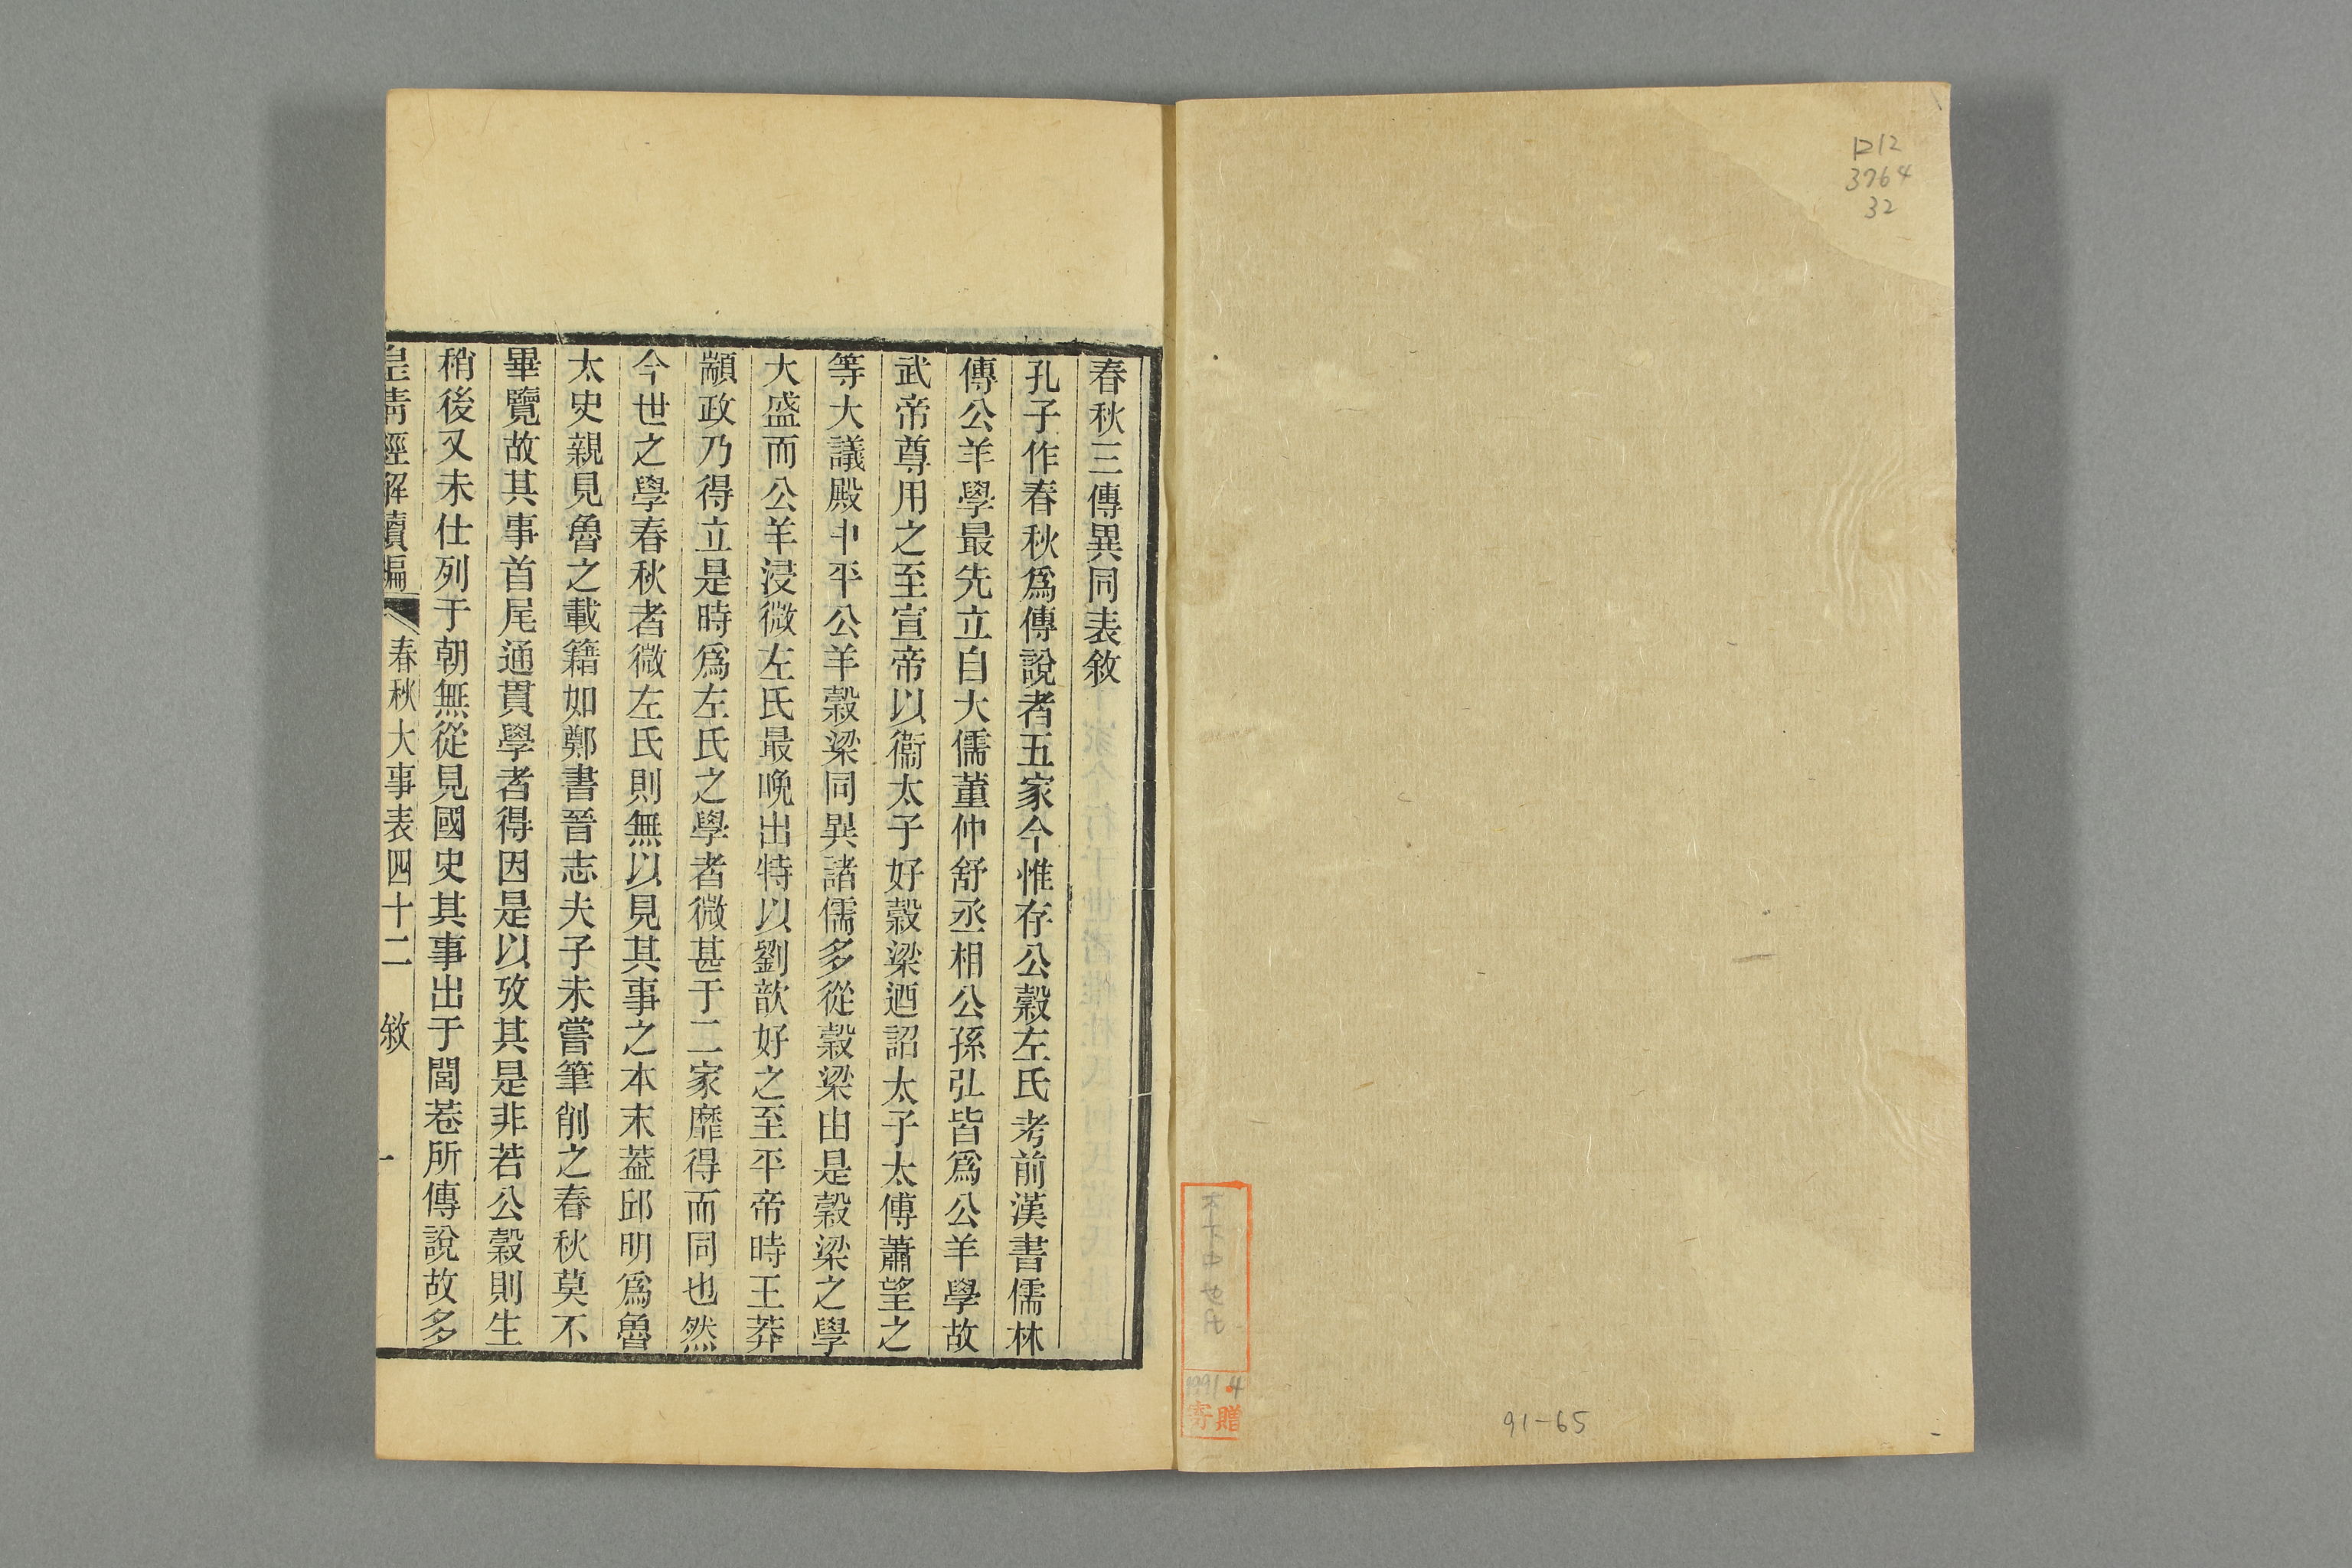 1212
3764
32
1991.4
寄贈
91-65
春秋三傳異同表敘
孔子作春秋爲傳說者五家今惟存公穀左氏考前漢書儒林
傳公羊學最先立自大儒董仲舒丞相公孫弘皆爲公羊學故
武帝尊用之至宣帝以衞太子好穀梁迺詔太子太傅蕭望之
等大議殿中平公羊穀梁同異諸儒多從穀梁由是穀梁之學
大盛而公羊浸微左氏最晩出特以劉歆好之至平帝時王莽
顓政乃得立是時爲左氏之學者微甚于二家靡得而同也然
今世之學春秋者微左氏則無以見其事之本末葢邱明爲魯
太史親見魯之載籍如鄭書晉志夫子未嘗筆削之春秋莫不
畢覽故其事首尾通貫學者得因是以攷其是非若公穀則生
稍後又未仕列于朝無從見國史其事出于閭巷所傳說故多
皇清經解續編
春秋大事表四十二 敘 一